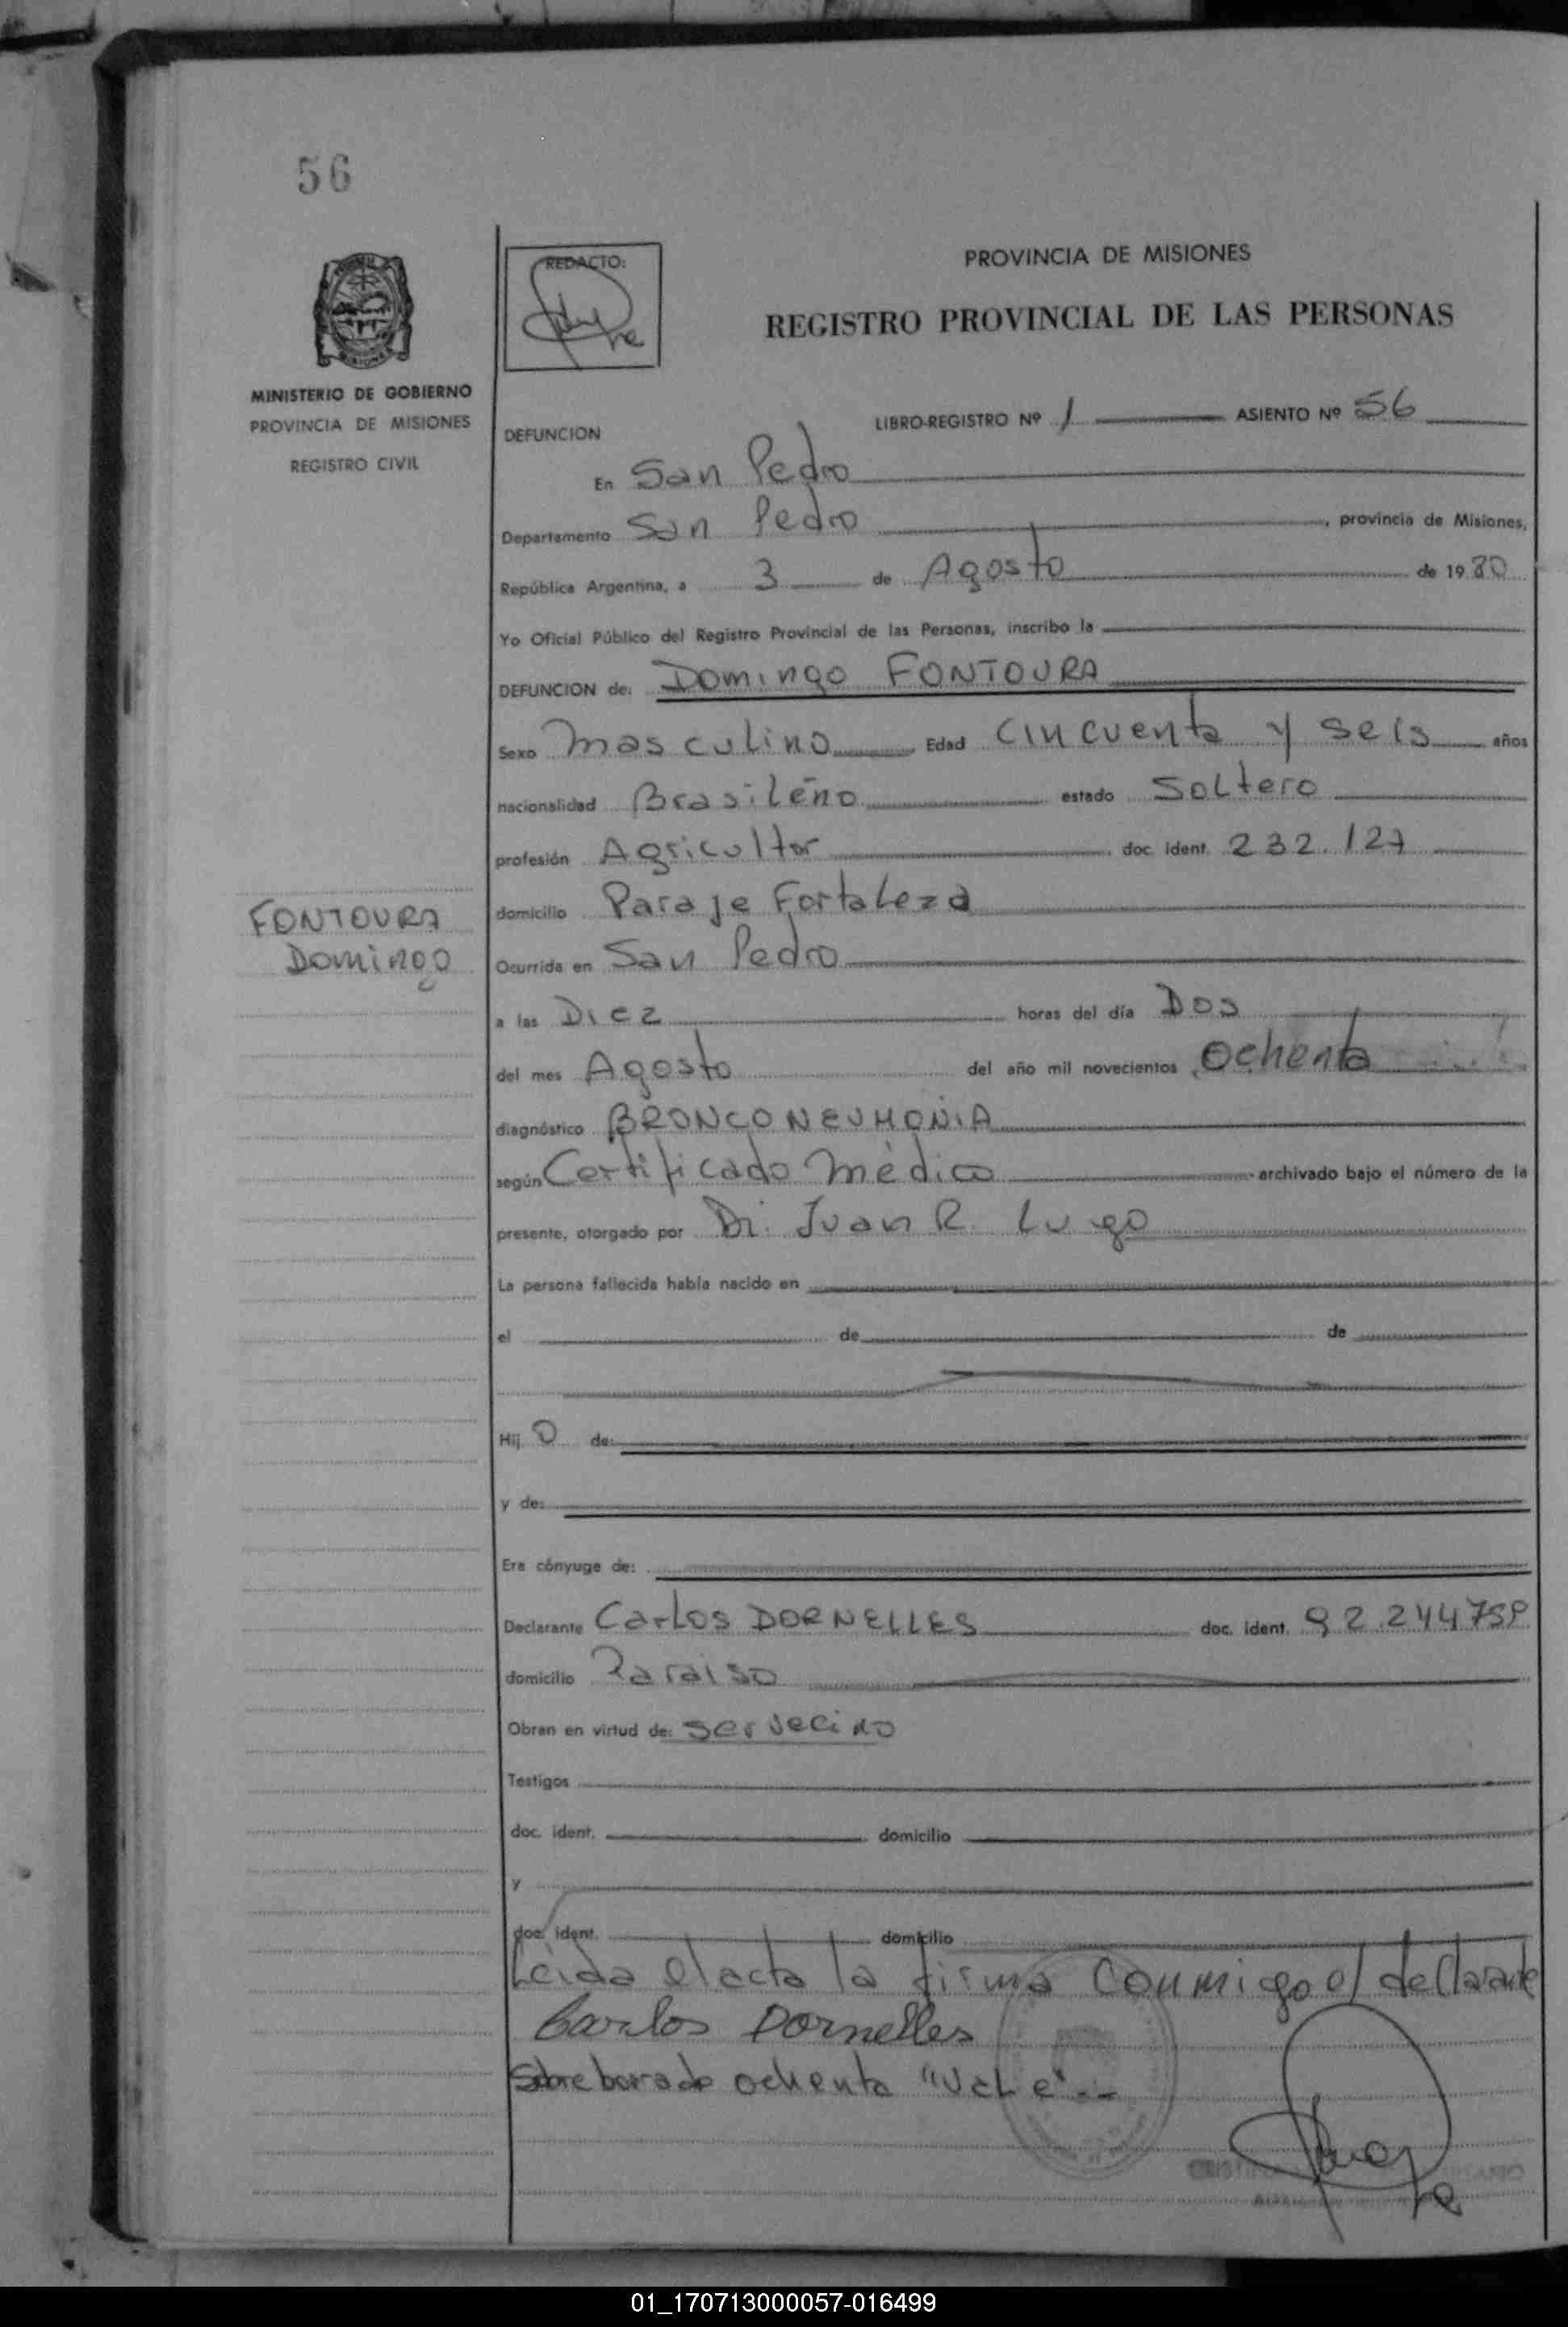 56
REDACTO:
PROVINCIA DE MISIONES
REGISTRO PROVINCIAL DE LAS PERSONAS
MINISTERIO DE GOBIERNO
PROVINCIA DE MISIONES
REGISTRO CIVIL
LIBRO-REGISTRO Nº 1 ASIENTO Nº 56
DEFUNCION
En San Pedro
Departamento San Pedro, provincia de Misiones,
República Argentina, a 3 de Agosto de 1980
Yo Oficial Público del Registro Provincial de las Personas, inscribo la
DEFUNCION de: Domingo FONTOURA
Sexo masculino Edad cincuenta y seis años
nacionalidad Brasileño estado Soltero
profesión Agricultor doc. ident. 232.127
FONTOURA
Domingo
domicilio Paraje Fortaleza
Ocurrida en San Pedro
a las Diez horas del día Dos
del mes Agosto del año mil novecientos Ochenta
diagnóstico BRONCONEUMONIA
según Certificado médico archivado bajo el número de la
presente, otorgado por Dr. Juan R. Lugo
La persona fallecida había nacido en
el de de
Hij O de:
y de:
Era cónyuge de:
Declarante Carlos DORNELLES doc. ident.
domicilio Paraiso
Obran en virtud de: ser vecino
Testigos
doc. ident. domicilio
y
doc. ident. domicilio
Leida el acta la firma conmigo el declarante
Carlos Dornelles
Sobre borrado ochenta "Vale".-
01_170713000057-016499